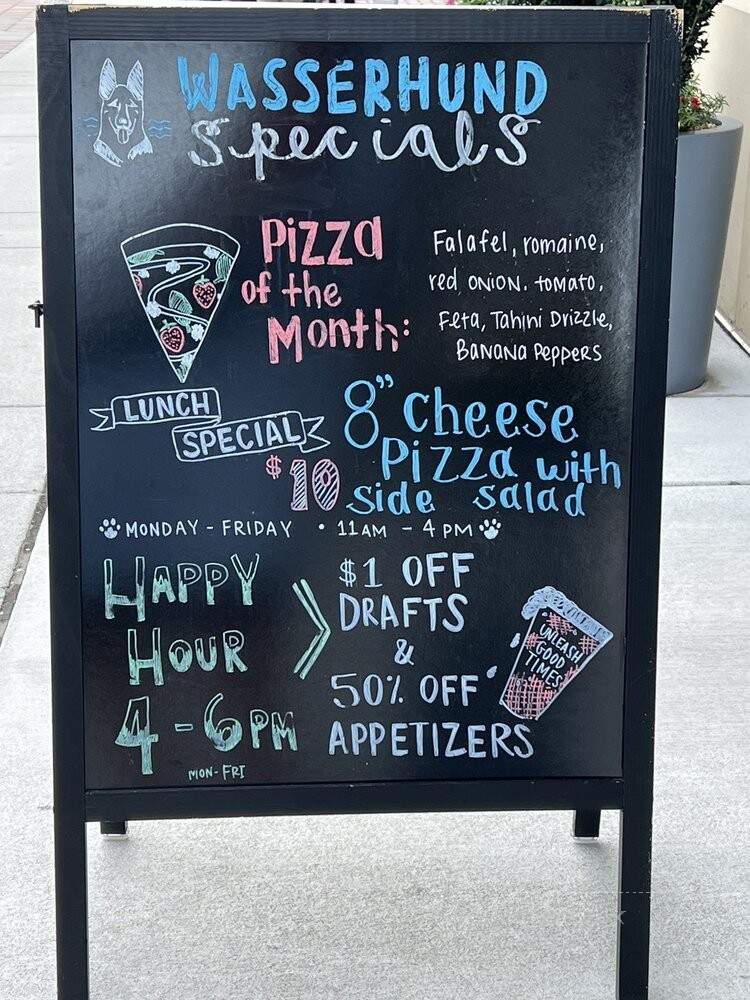 WASSERHUND
Specials
Pizza
of the
Month:
Falafel, romaine,
red onion, tomato,
Feta, Tahini Drizzle,
Banana Peppers
LUNCH
SPECIAL
$10
8" Cheese
Pizza with
side salad
MONDAY - FRIDAY • 11AM - 4 PM
HAPPY
HOUR
4-6PM
MON-FRI
$1 OFF
DRAFTS
&
50% OFF
APPETIZERS
UNLEASH
GOOD
TIMES